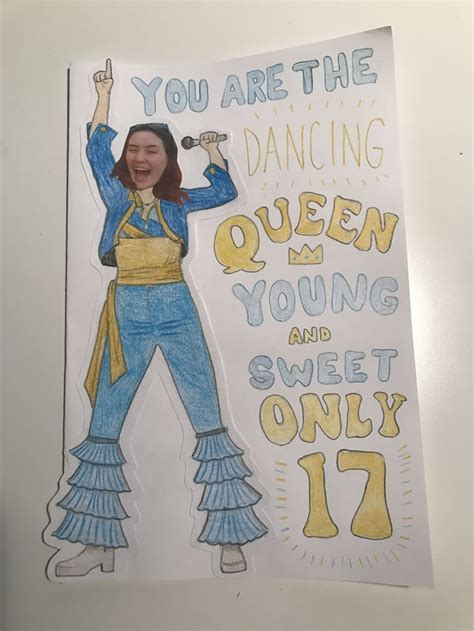 YOU ARE THE
DANCING
QUEEN
YOUNG
AND
SWEET
ONLY
17